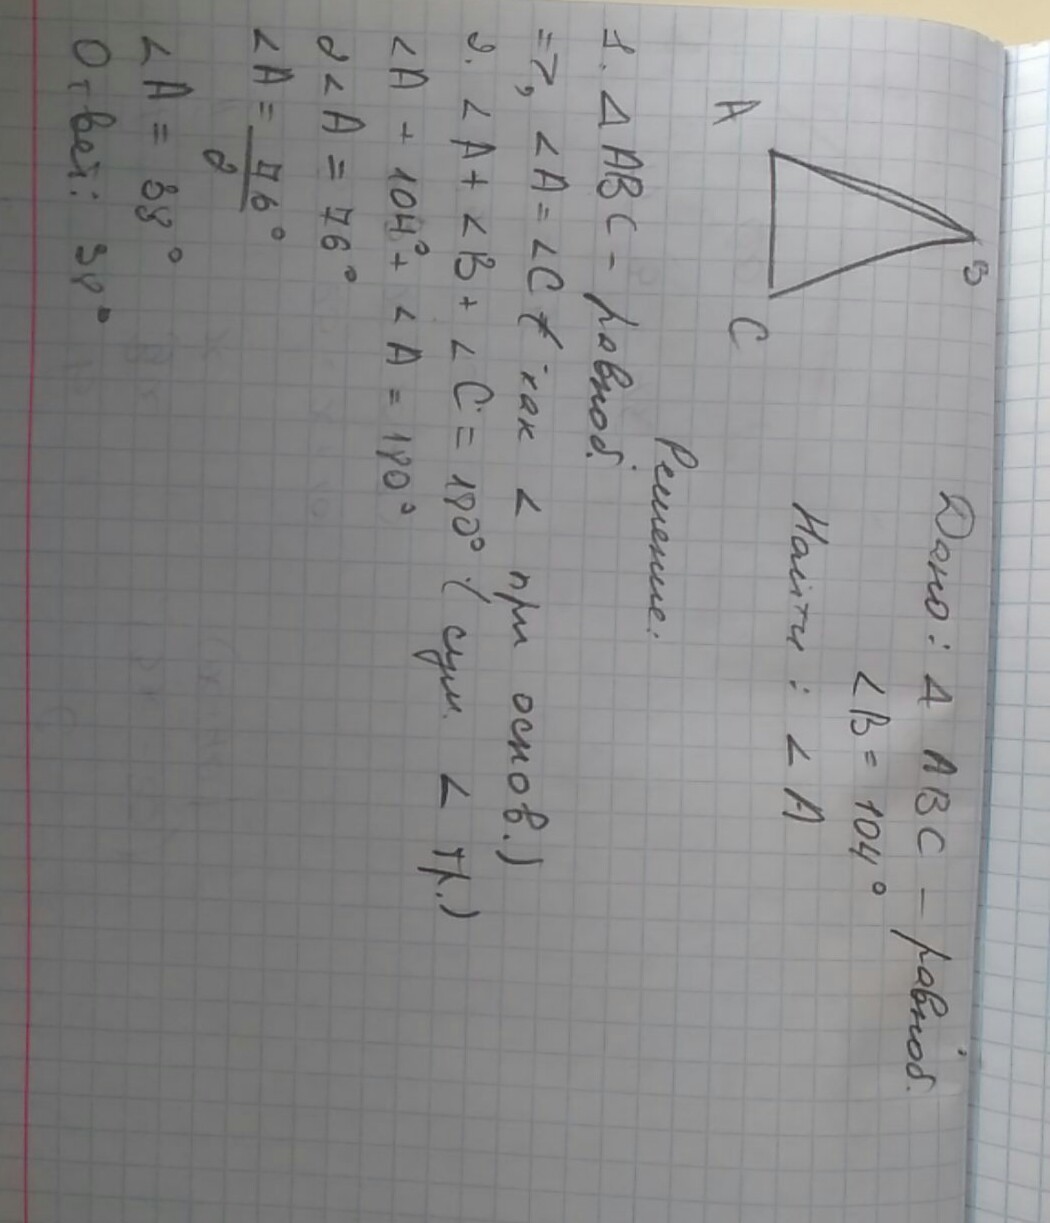 Дано: Δ ABC - равноб.
<B = 104°
Найти: < A
B
A
C
Решение:
1. Δ ABC - равноб.
=>, <A = <C (как < при основ.)
2. <A + <B + <C = 180° (сум. < тр.)
<A + 104° + <A = 180°
2 <A = 76°
<A = 76°/2
<A = 38°
Ответ: 38°